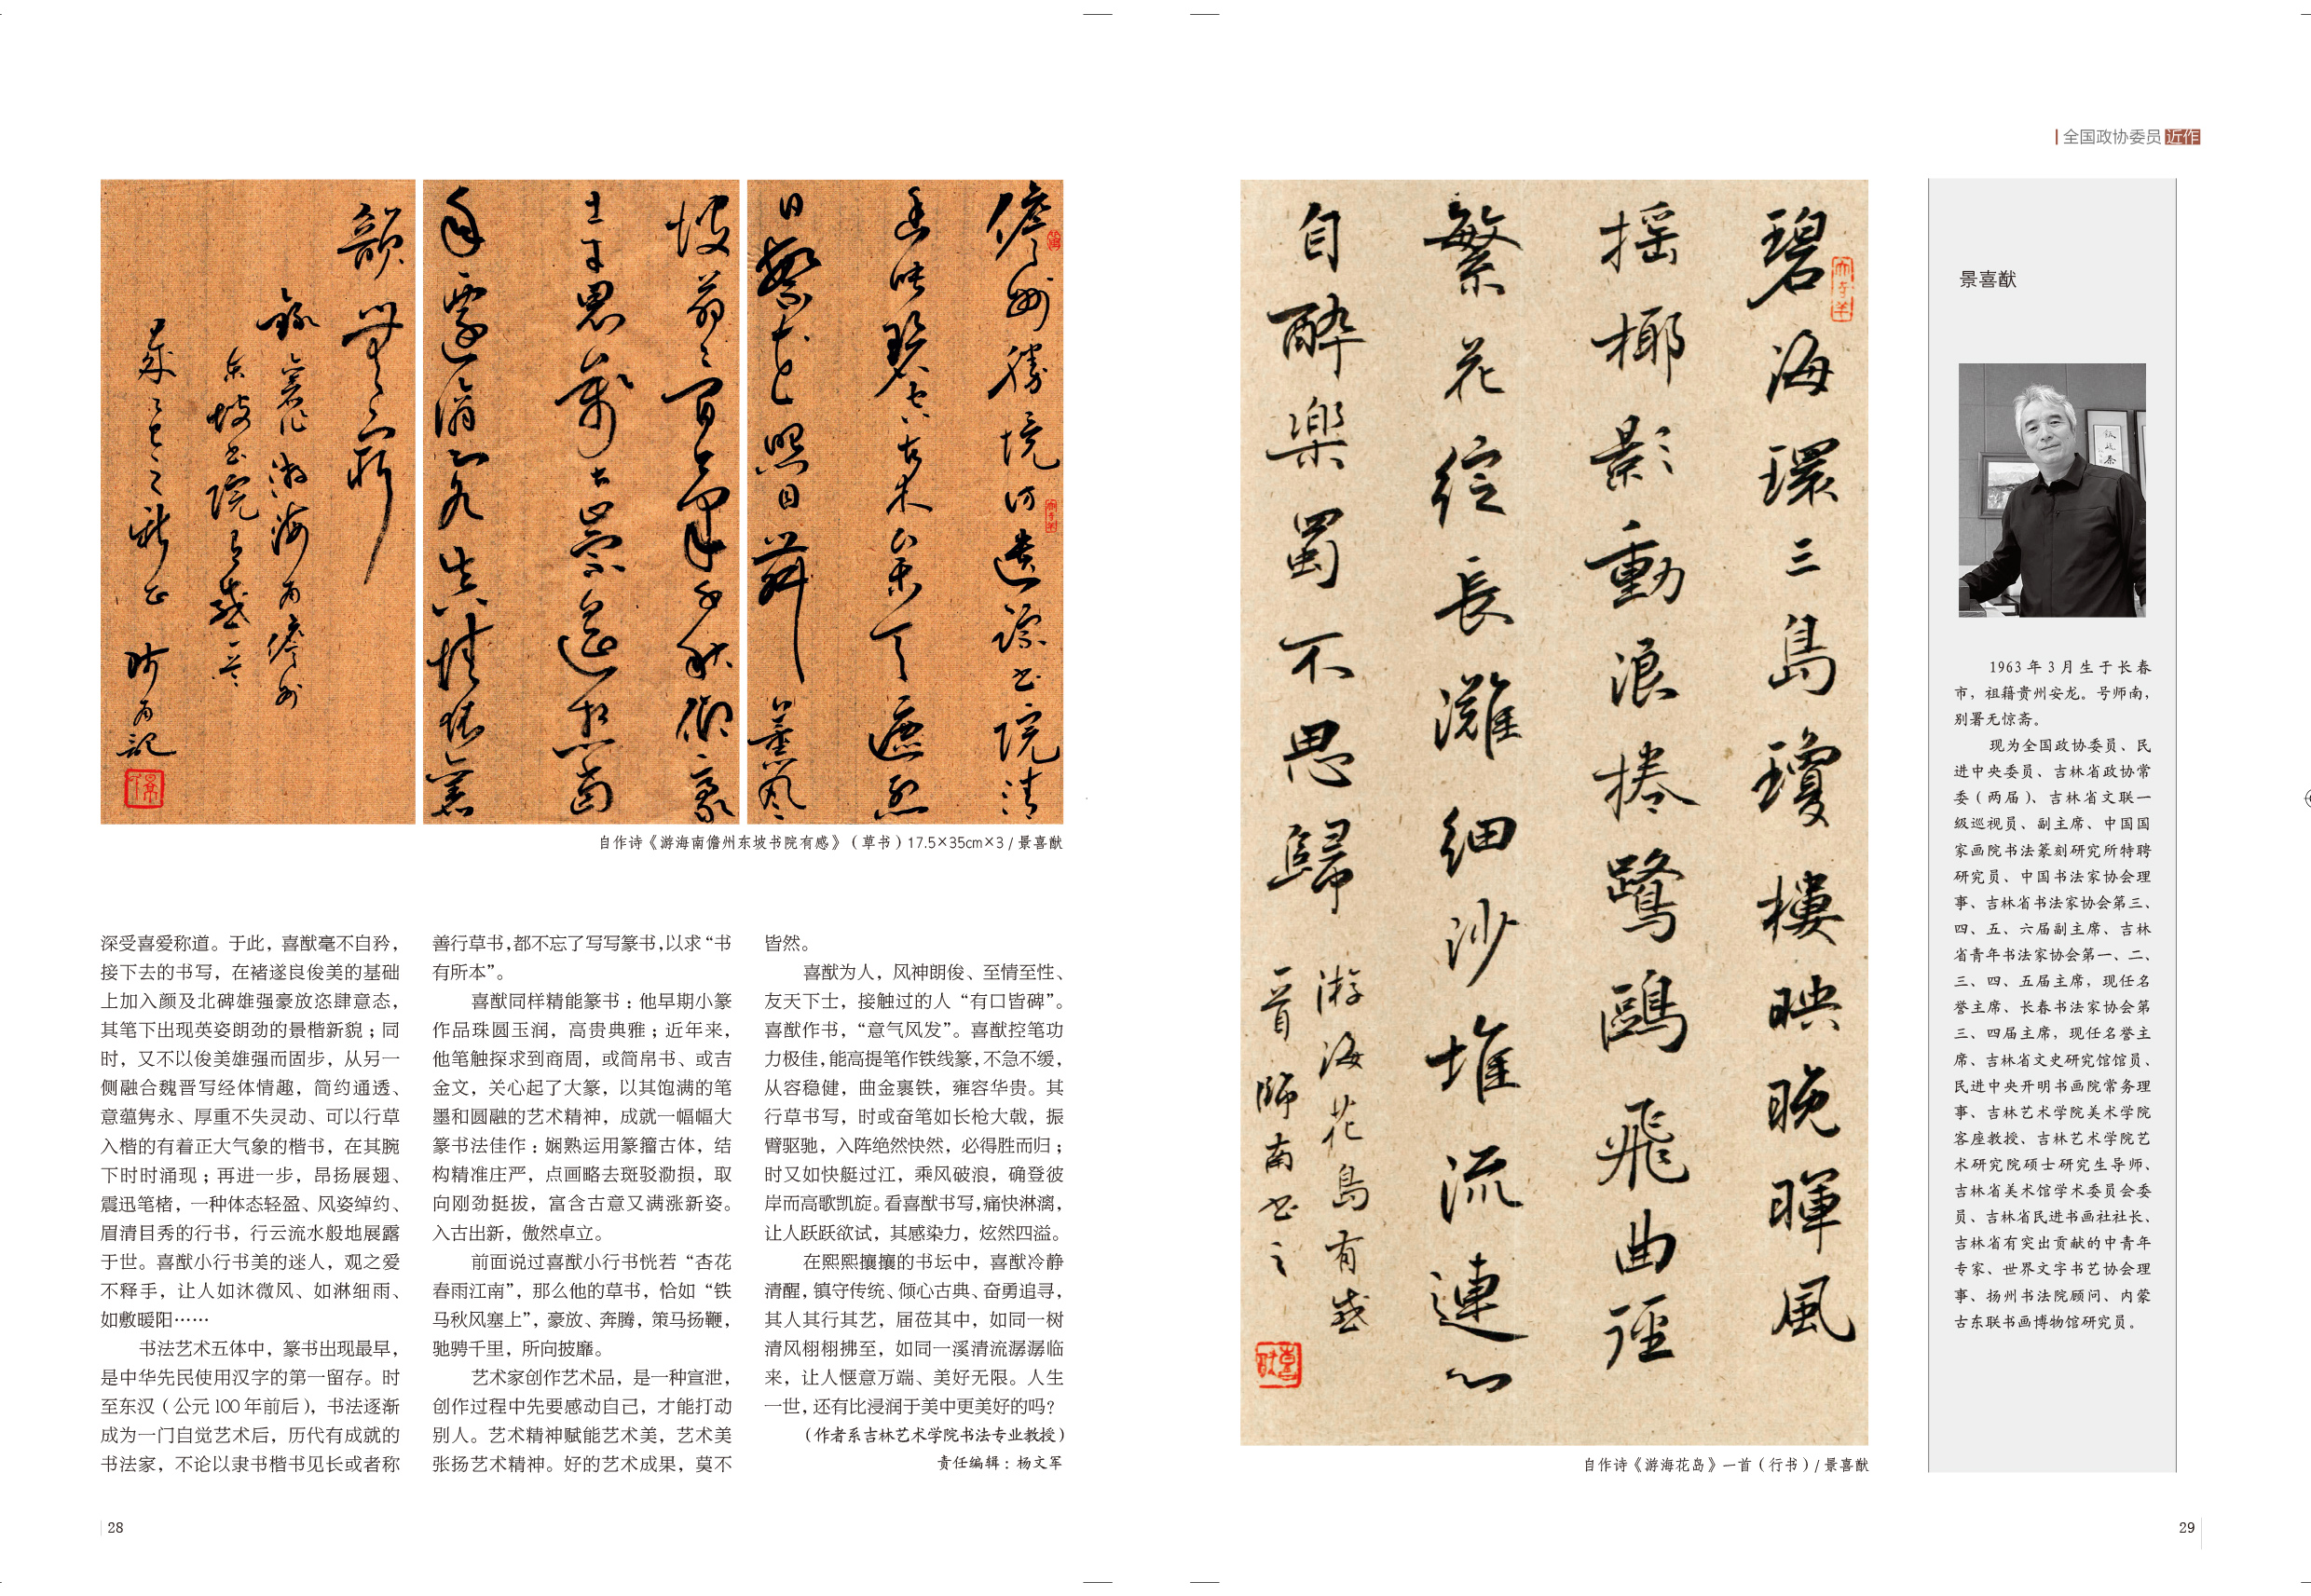 儋州勝境訪遺踪書院清
幽映碧空古木參天遮烈
日繁花照目舞薰風
坡翁
士才思萬古崇
韻無窮
錄舊作游海南儋州
東坡書院有感一首
自作诗《游海南儋州东坡书院有感》（草书）17.5×35cm×3 / 景喜猷
深受喜爱称道。于此，喜猷毫不自矜，
接下去的书写，在褚遂良俊美的基础
上加入颜及北碑雄强豪放恣肆意态，
其笔下出现英姿朗劲的景楷新貌；同
时，又不以俊美雄强而固步，从另一
侧融合魏晋写经体情趣，简约通透、
意蕴隽永、厚重不失灵动、可以行草
入楷的有着正大气象的楷书，在其腕
下时时涌现；再进一步，昂扬展翅、
震迅笔楮，一种体态轻盈、风姿绰约、
眉清目秀的行书，行云流水般地展露
于世。喜猷小行书美的迷人，观之爱
不释手，让人如沐微风、如淋细雨、
如敷暖阳……
书法艺术五体中，篆书出现最早，
是中华先民使用汉字的第一留存。时
至东汉（公元 100 年前后），书法逐渐
成为一门自觉艺术后，历代有成就的
书法家，不论以隶书楷书见长或者称
善行草书，都不忘了写写篆书，以求“书
有所本”。
喜猷同样精能篆书：他早期小篆
作品珠圆玉润，高贵典雅；近年来，
他笔触探求到商周，或简帛书、或吉
金文，关心起了大篆，以其饱满的笔
墨和圆融的艺术精神，成就一幅幅大
篆书法佳作：娴熟运用篆籀古体，结
构精准庄严，点画略去斑驳泐损，取
向刚劲挺拔，富含古意又满涨新姿。
入古出新，傲然卓立。
前面说过喜猷小行书恍若“杏花
春雨江南”，那么他的草书，恰如“铁
马秋风塞上”，豪放、奔腾，策马扬鞭，
驰骋千里，所向披靡。
艺术家创作艺术品，是一种宣泄，
创作过程中先要感动自己，才能打动
别人。艺术精神赋能艺术美，艺术美
张扬艺术精神。好的艺术成果，莫不
皆然。
喜猷为人，风神朗俊、至情至性、
友天下士，接触过的人“有口皆碑”。
喜猷作书，“意气风发”。喜猷控笔功
力极佳，能高提笔作铁线篆，不急不缓，
从容稳健，曲金裹铁，雍容华贵。其
行草书写，时或奋笔如长枪大戟，振
臂驱驰，入阵绝然快然，必得胜而归；
时又如快艇过江，乘风破浪，确登彼
岸而高歌凯旋。看喜猷书写，痛快淋漓，
让人跃跃欲试，其感染力，炫然四溢。
在熙熙攘攘的书坛中，喜猷冷静
清醒，镇守传统、倾心古典、奋勇追寻，
其人其行其艺，届莅其中，如同一树
清风栩栩拂至，如同一溪清流潺潺临
来，让人惬意万端、美好无限。人生
一世，还有比浸润于美中更美好的吗？
（作者系吉林艺术学院书法专业教授）
责任编辑：杨文军
28
全国政协委员 近作
碧海環三島瓊樓映晚暉風
搖椰影動浪捲鷺鷗飛曲徑
繁花綻長灘細沙堆流連心
自醉樂蜀不思歸
游海花島有感
一首師南书之
自作诗《游海花岛》一首（行书）/ 景喜猷
景喜猷
1963 年 3 月生于长春
市，祖籍贵州安龙。号师南，
别署无惊斋。
现为全国政协委员、民
进中央委员、吉林省政协常
委（两届）、吉林省文联一
级巡视员、副主席、中国国
家画院书法篆刻研究所特聘
研究员、中国书法家协会理
事、吉林省书法家协会第三、
四、五、六届副主席、吉林
省青年书法家协会第一、二、
三、四、五届主席，现任名
誉主席、长春书法家协会第
三、四届主席，现任名誉主
席、吉林省文史研究馆馆员、
民进中央开明书画院常务理
事、吉林艺术学院美术学院
客座教授、吉林艺术学院艺
术研究院硕士研究生导师、
吉林省美术馆学术委员会委
员、吉林省民进书画社社长、
吉林省有突出贡献的中青年
专家、世界文字书艺协会理
事、扬州书法院顾问、内蒙
古东联书画博物馆研究员。
29